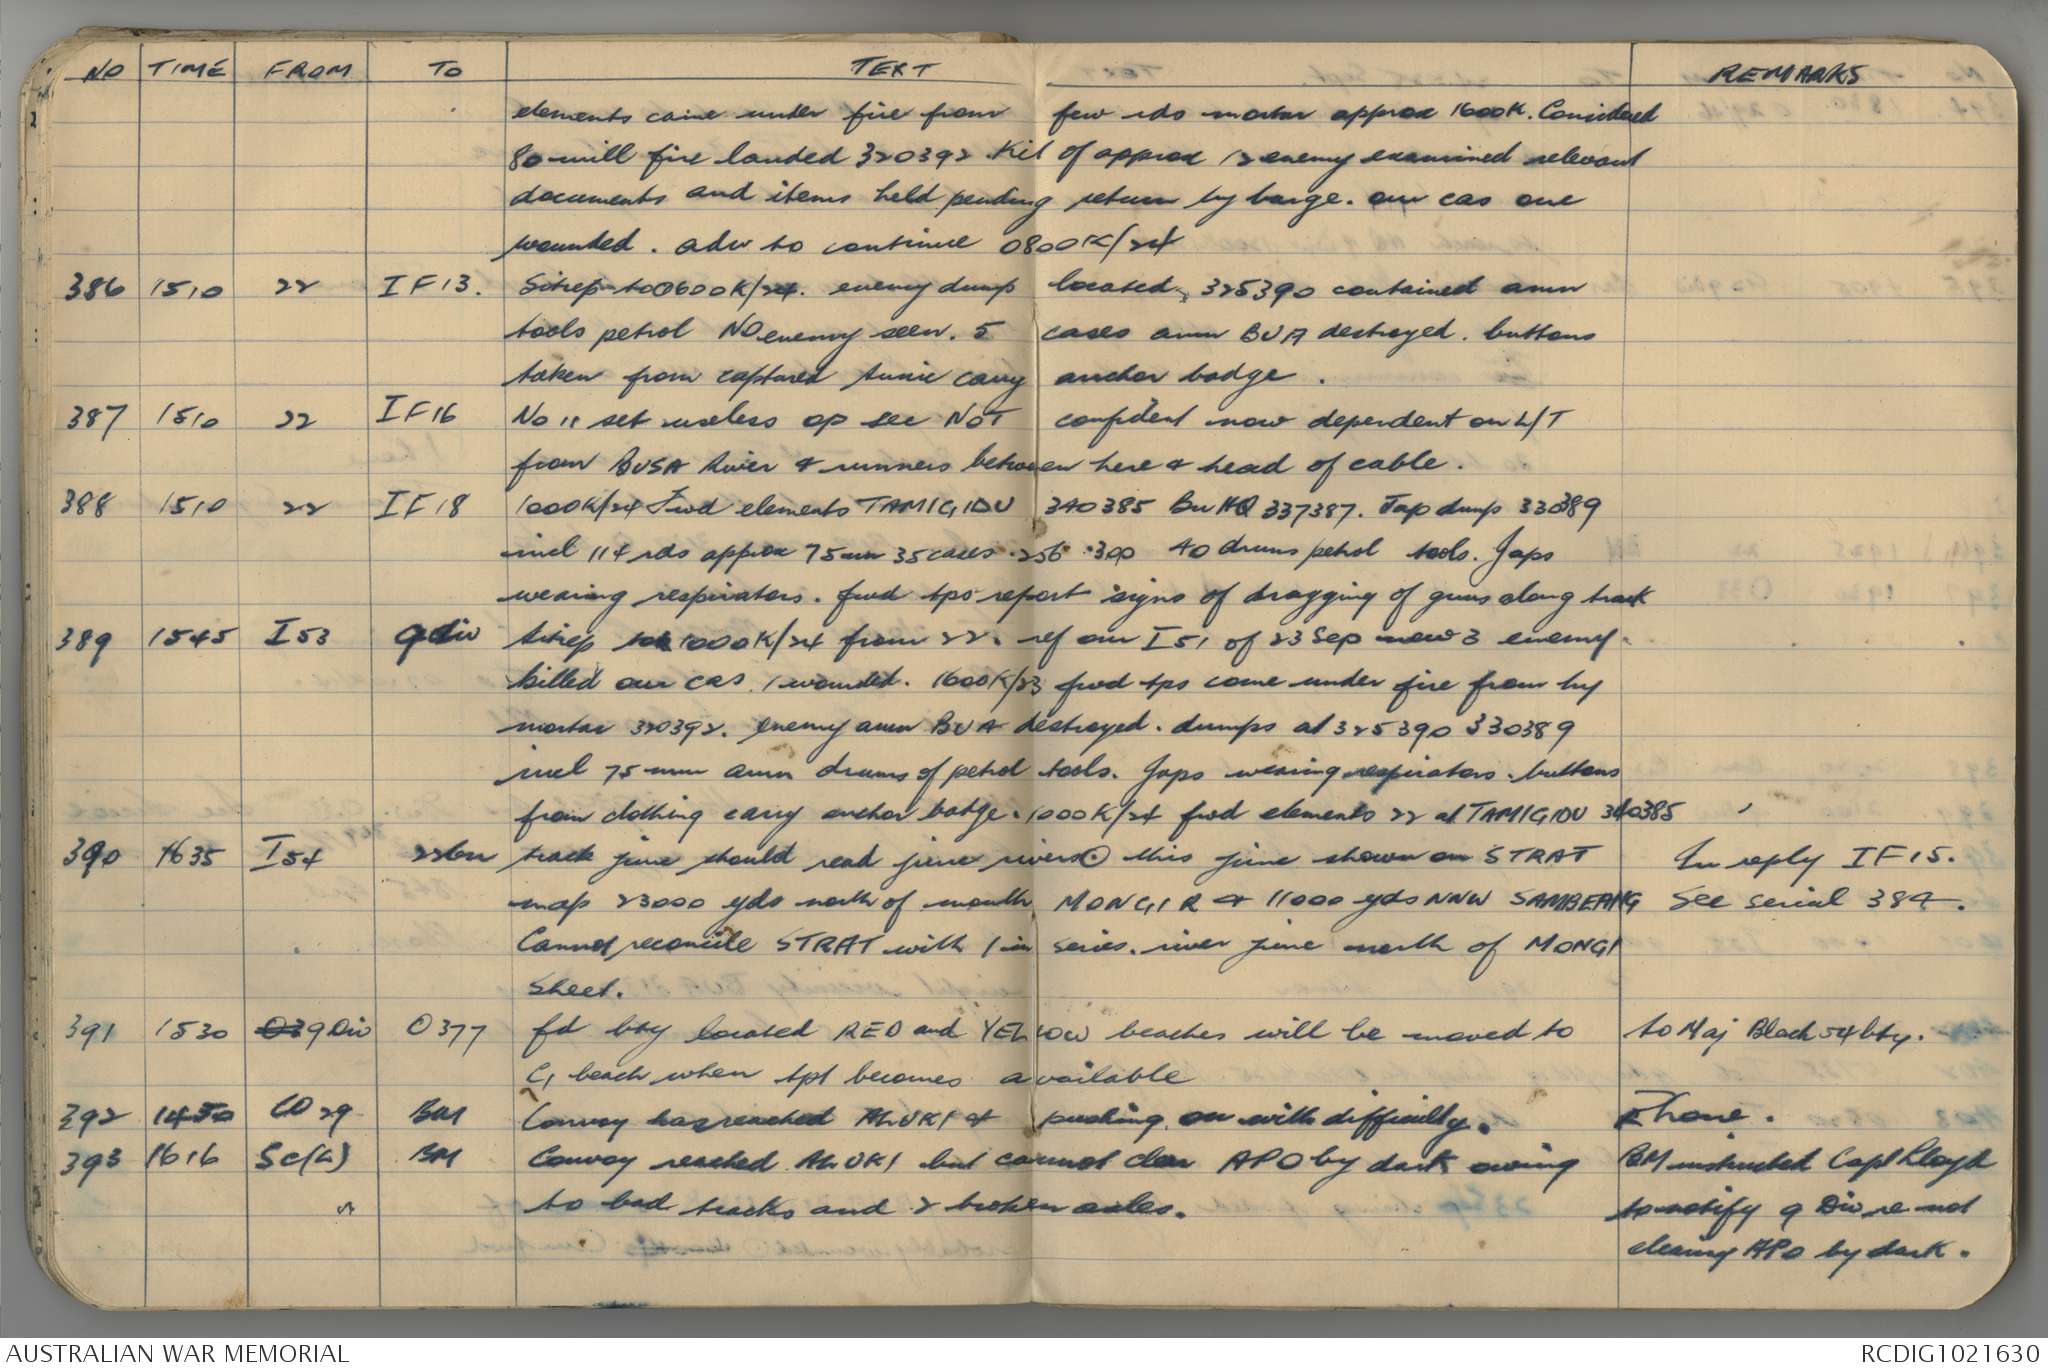 NO TIME FROM TO TEXT REMARKS
elements came under fire from few rds mortar approx 1600K. Considered
80 mill fire landed 320392. Kit of approx 12 enemy examined relevant
documents and items held pending return by barge. our cas one
wounded. adv to continue 0800K/24
386 1510 22 IF13. Sitrep to 0600K/24. enemy dump located, 325390 contained amn
tools petrol NO enemy seen. 5 cases amn BUA destroyed. buttons
taken from captured tunic carry anchor badge.
387 1510 22 IF16 No 11 set useless op sec NOT confident now dependent on L/T
from BUSA River & runners between here & head of cable.
388 1510 22 IF18 1000K/24 Fwd elements TAMIGIDU 340385 Bn HQ 337387. Jap dump 330389
incl 114 rds approx 75 mm 35 cases .256 .300 40 drums petrol tools. Japs
wearing respirators. fwd tps report signs of dragging of guns along track
389 1545 I53 9 div Sitrep to 1000K/24 from 22. ref our I51 of 23 Sep now 3 enemy
killed our cas 1 wounded. 1600K/23 fwd tps came under fire from hy
mortar 320392. enemy amn BUA destroyed. dumps at 325390 330389
incl 75 mm amn drums of petrol tools. Japs wearing respirators. buttons
from clothing carry anchor badge. 1000K/24 fwd elements 22 at TAMIGIDU 340385
390 1635 I54 22 bn track junc should read junc rivers ⊙ this junc shown on STRAT In reply IF15.
map 23000 yds north of mouth MONGI R & 11000 yds NNW SAMBEANG See serial 384.
Cannot reconcile STRAT with 1 in series. river junc north of MONGI
sheet.
391 1530 9 Div O377 fd bty located RED and YELLOW beaches will be moved to to Maj Black 54 bty.
G beach when tpt becomes available
392 1450 CO 29 BM Convoy has reached ALUKI & pushing on with difficulty. Phone.
393 1616 Sc(L) BM Convoy reached ALUKI but cannot clear APO by dark owing BM instructed Capt Lloyd
to bad tracks and 2 broken axles. to notify 9 Div re not
clearing APO by dark.
AUSTRALIAN WAR MEMORIAL RCDIG1021630